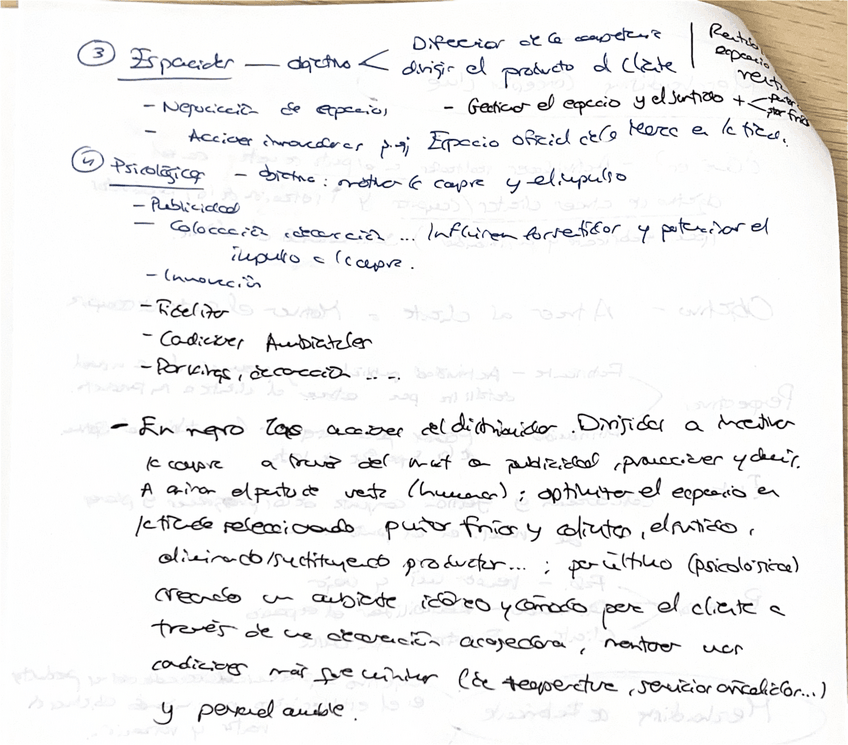 ③ Espaciales — objetivo < Diferenciar de la competencia
dirigir el producto al cliente
espacio
- Negociación de espacios
- Gestionar el espacio y el sentido + <
- Acciones innovadoras p.ej Espacio oficial de la Marca en la tienda.
④ Psicológica - objetivo: motivar la compra y el impulso
- Publicidad
- Colocación, decoración ... Influir en los sentidos y potenciar el
impulso a la compra.
- Innovación
- Fidelizar
- Condiciones Ambientales
- Parkings, decoración ....
- En negro las acciones del distribuidor. Dirigidas a incentivar
la compra a través del mat en publicidad, promociones y
A animar el punto de venta (humanos); optimizar el espacio en
la tienda seleccionando puntos fríos y calientes, el sentido,
eliminando/sustituyendo productos...; por último (psicológica)
creando un ambiente idóneo y cómodo para el cliente a
través de una decoración acogedora, mantener unas
condiciones más que mínimas (de temperatura, servicios analizados...)
y personal amable.